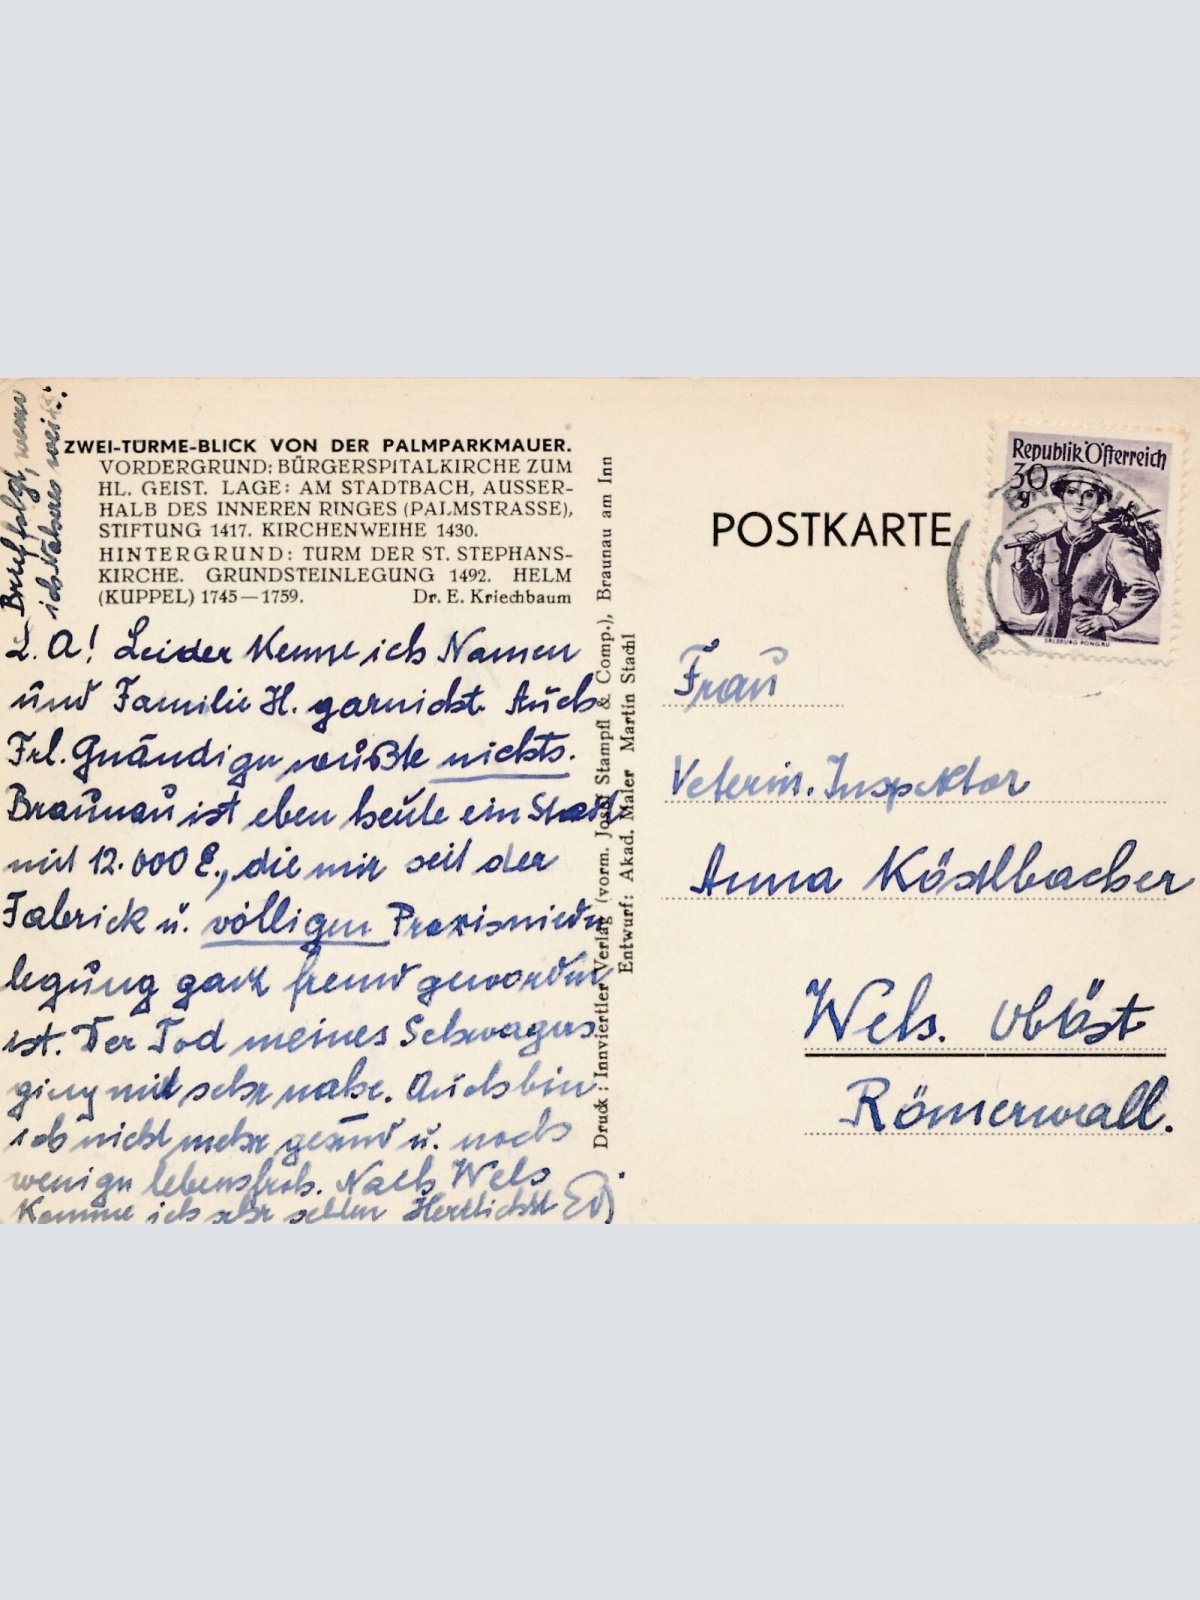 Brief folgt, wenn
ich Näheres weiß.
ZWEI-TÜRME-BLICK VON DER PALMPARKMAUER.
VORDERGRUND: BÜRGERSPITALKIRCHE ZUM
HL. GEIST. LAGE: AM STADTBACH, AUSSER-
HALB DES INNEREN RINGES (PALMSTRASSE),
STIFTUNG 1417. KIRCHENWEIHE 1430.
HINTERGRUND: TURM DER ST. STEPHANS-
KIRCHE. GRUNDSTEINLEGUNG 1492. HELM
(KUPPEL) 1745—1759. Dr. E. Kriechbaum
L. A! Leider kenne ich Namen
und Familie H. garnicht. Auch
Frl. Gnändiger wüßte nichts.
Braunau ist eben heute ein Stadt
mit 12.000 E., die mir seit der
Fabrick u. völligen Praxisnieder
legung ganz fremd geworden
ist. Der Tod meines Schwagers
ging mit sehr nahe. Auch bin
ich nicht mehr gesund u. noch
weniger lebensfroh. Nach Wels
komme ich sehr selten Herzlichst
Druck: Innviertler Verlag (vorm. Josef Stampfl & Comp.), Braunau am Inn
Entwurf: Akad. Maler Martin Stachl
POSTKARTE
Republik Österreich
30
g
SALZBURG PONGAU
Frau
Veterin. Inspektor
Anna Köstlbacher
Wels. Oböst
Römerwall.